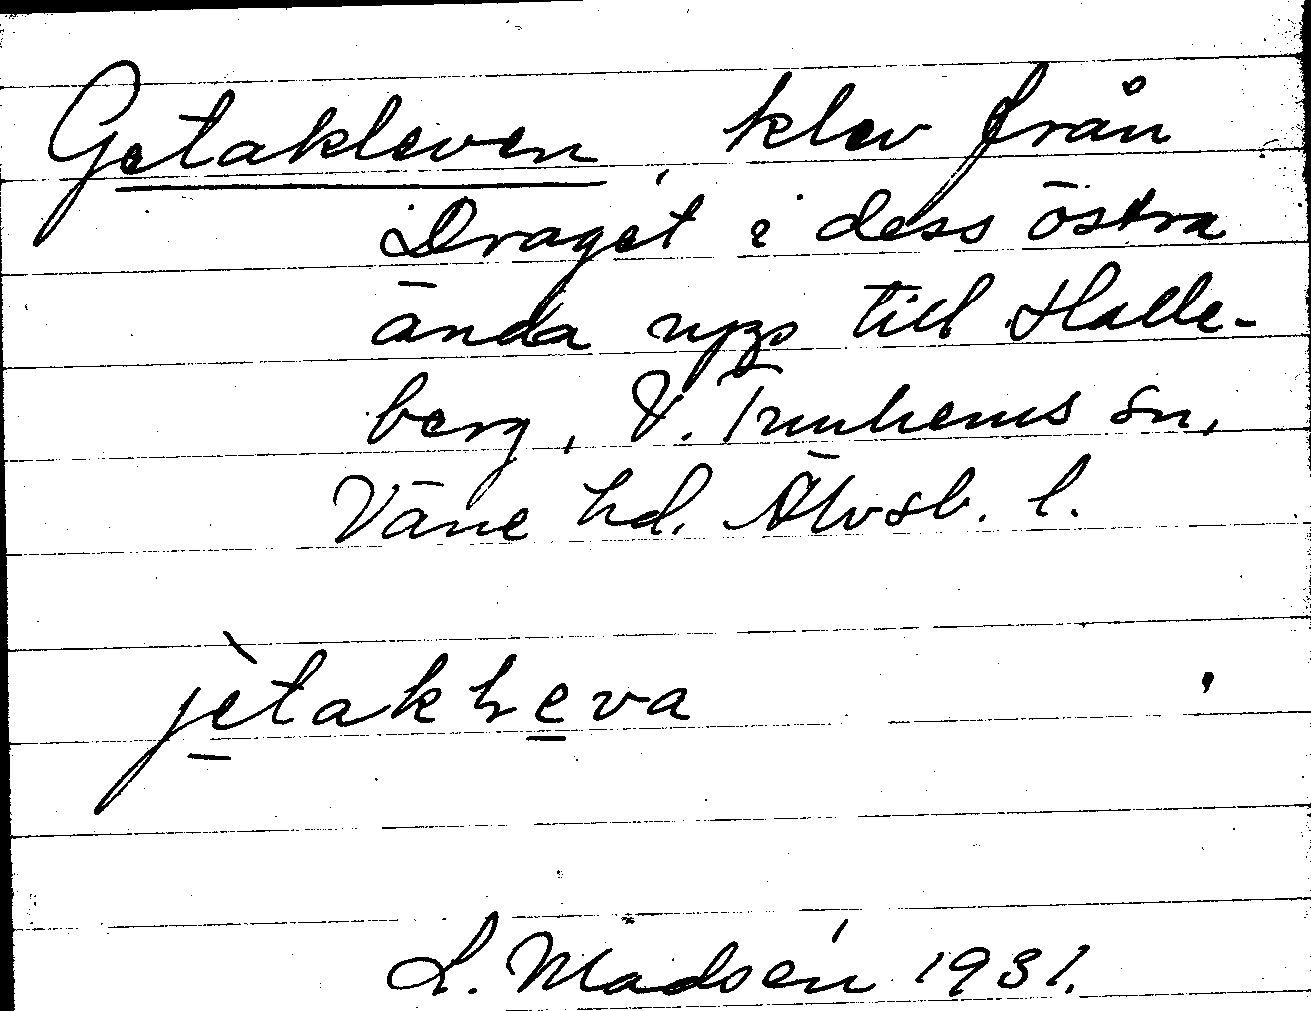 Getakleven, klev från
Draget i dess östra
ända upp till Halle-
berg, V. Tunhems sn,
Väne hd. Älvsb. l.
jètakleva
L. Madsén 1931.